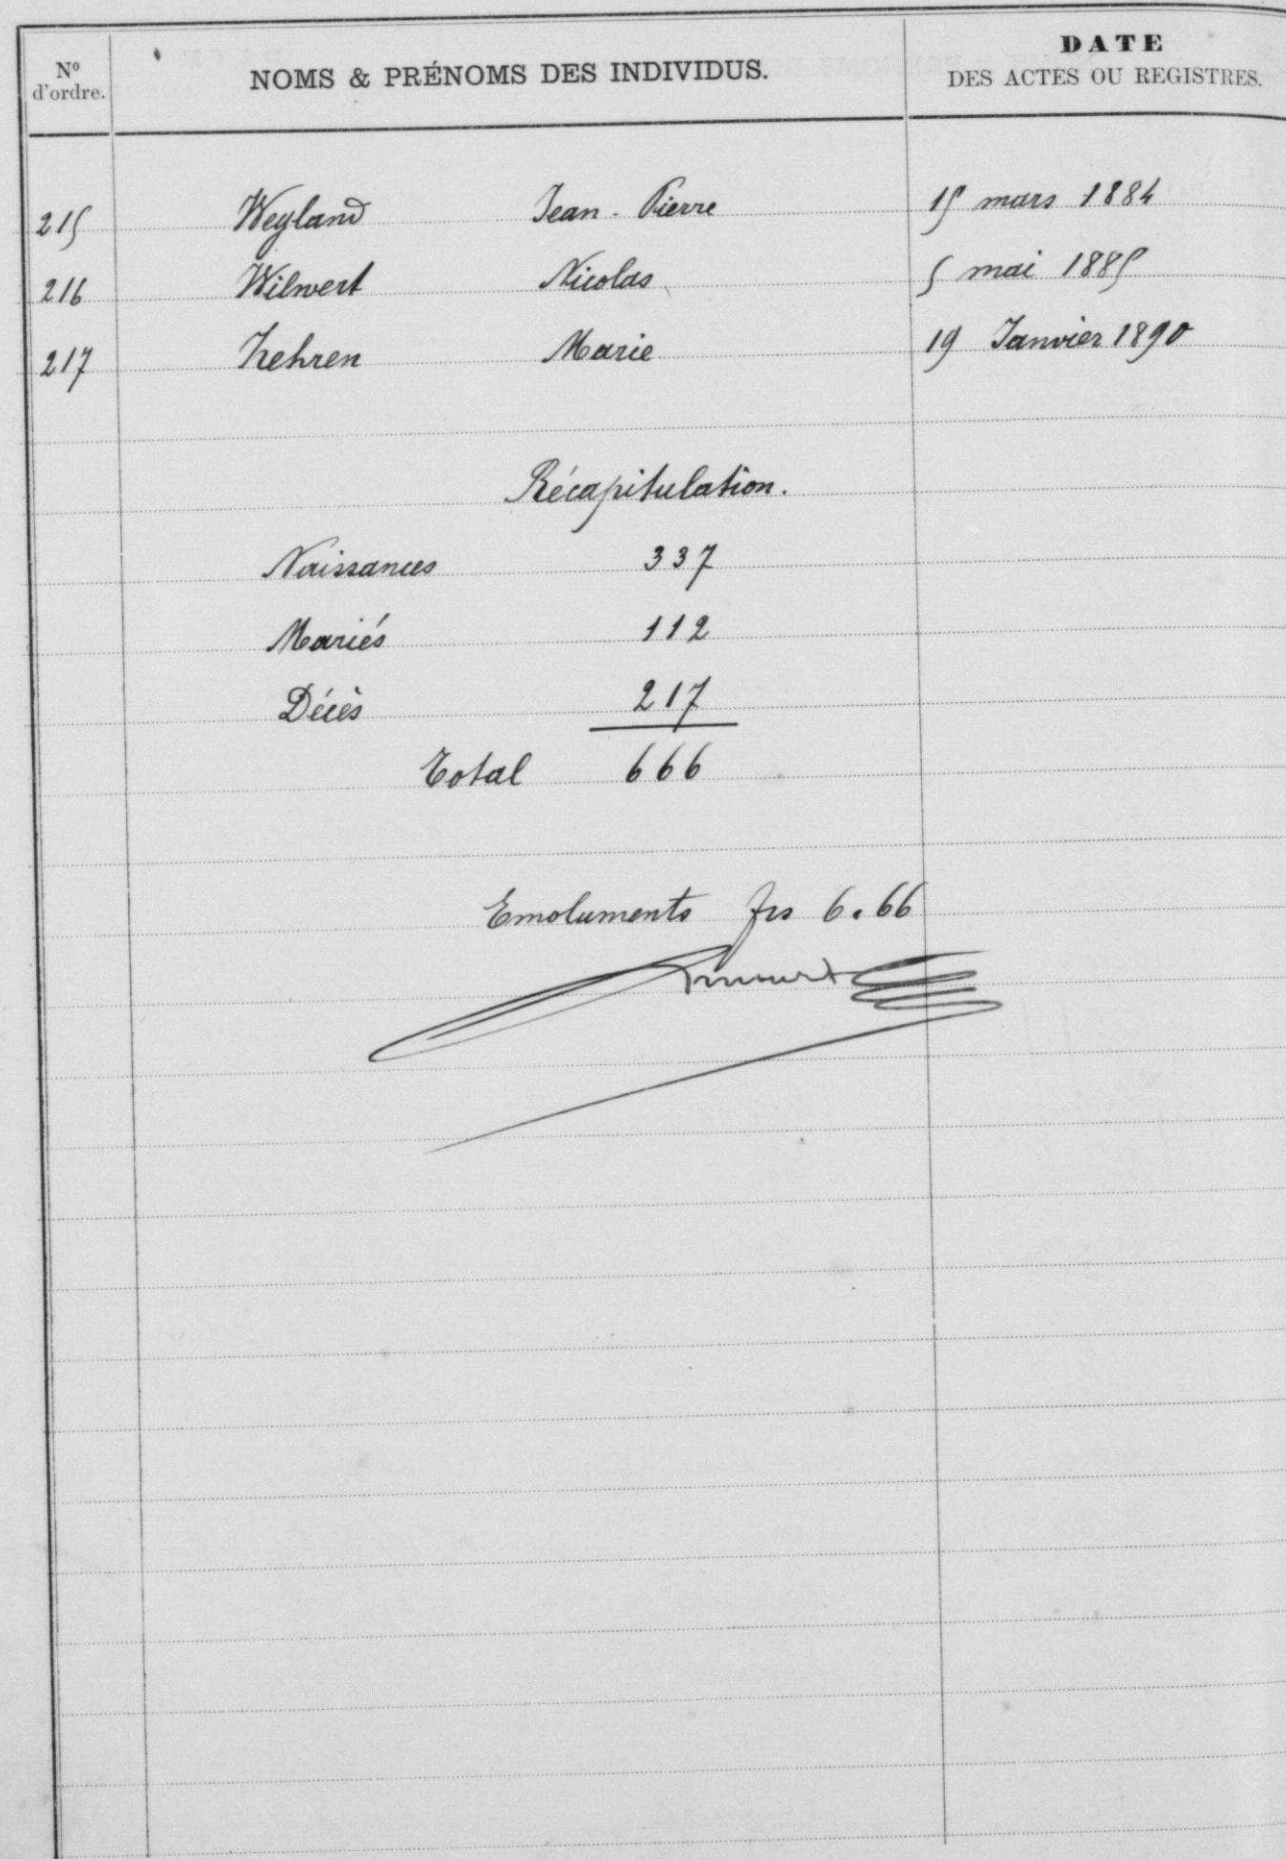 N° d'ordre. NOMS & PRÉNOMS DES INDIVIDUS. DATE DES ACTES OU REGISTRES.
215 Weyland Jean-Pierre 15 mars 1884
216 Wilwert Nicolas 5 mai 1885
217 Zehren Marie 19 Janvier 1890
Récapitulation.
Naissances 337
Mariés 112
Décès 217
Total 666
Emoluments frs 6.66